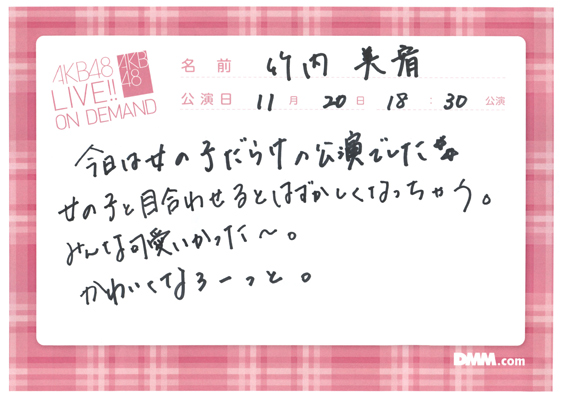 AKB48
LIVE!!
ON DEMAND
AKB
48
名前 竹内美宥
公演日 11月20日 18:30公演
今日は女の子だらけの公演でした
女の子と目合わせるとはずかしくなっちゃう。
みんな可愛いかった〜。
かわいくなろーっと。
DMM.com